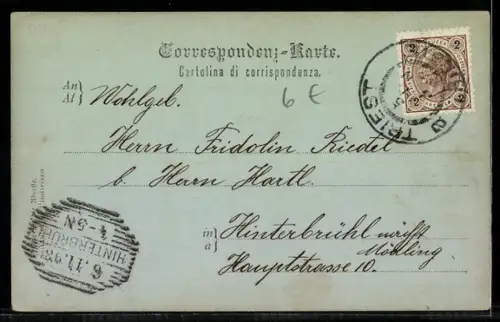 Correspondenz-Karte.
Cartolina di corrispondenza.
An
Al
Wohlgeb.
6 €
Herrn Fridolin Riedel
b. Herrn Hartl
in
a
Hinterbrühl
Mödling
Hauptstrasse 10.
2 2
TRIEST
HINTERBRÜHL
6.11.98
4-5N